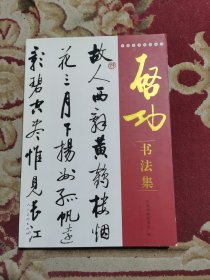 啟功
书法集
故人西辞黄鶴楼烟
花三月下揚州孤帆遠
影碧空尽惟見長江